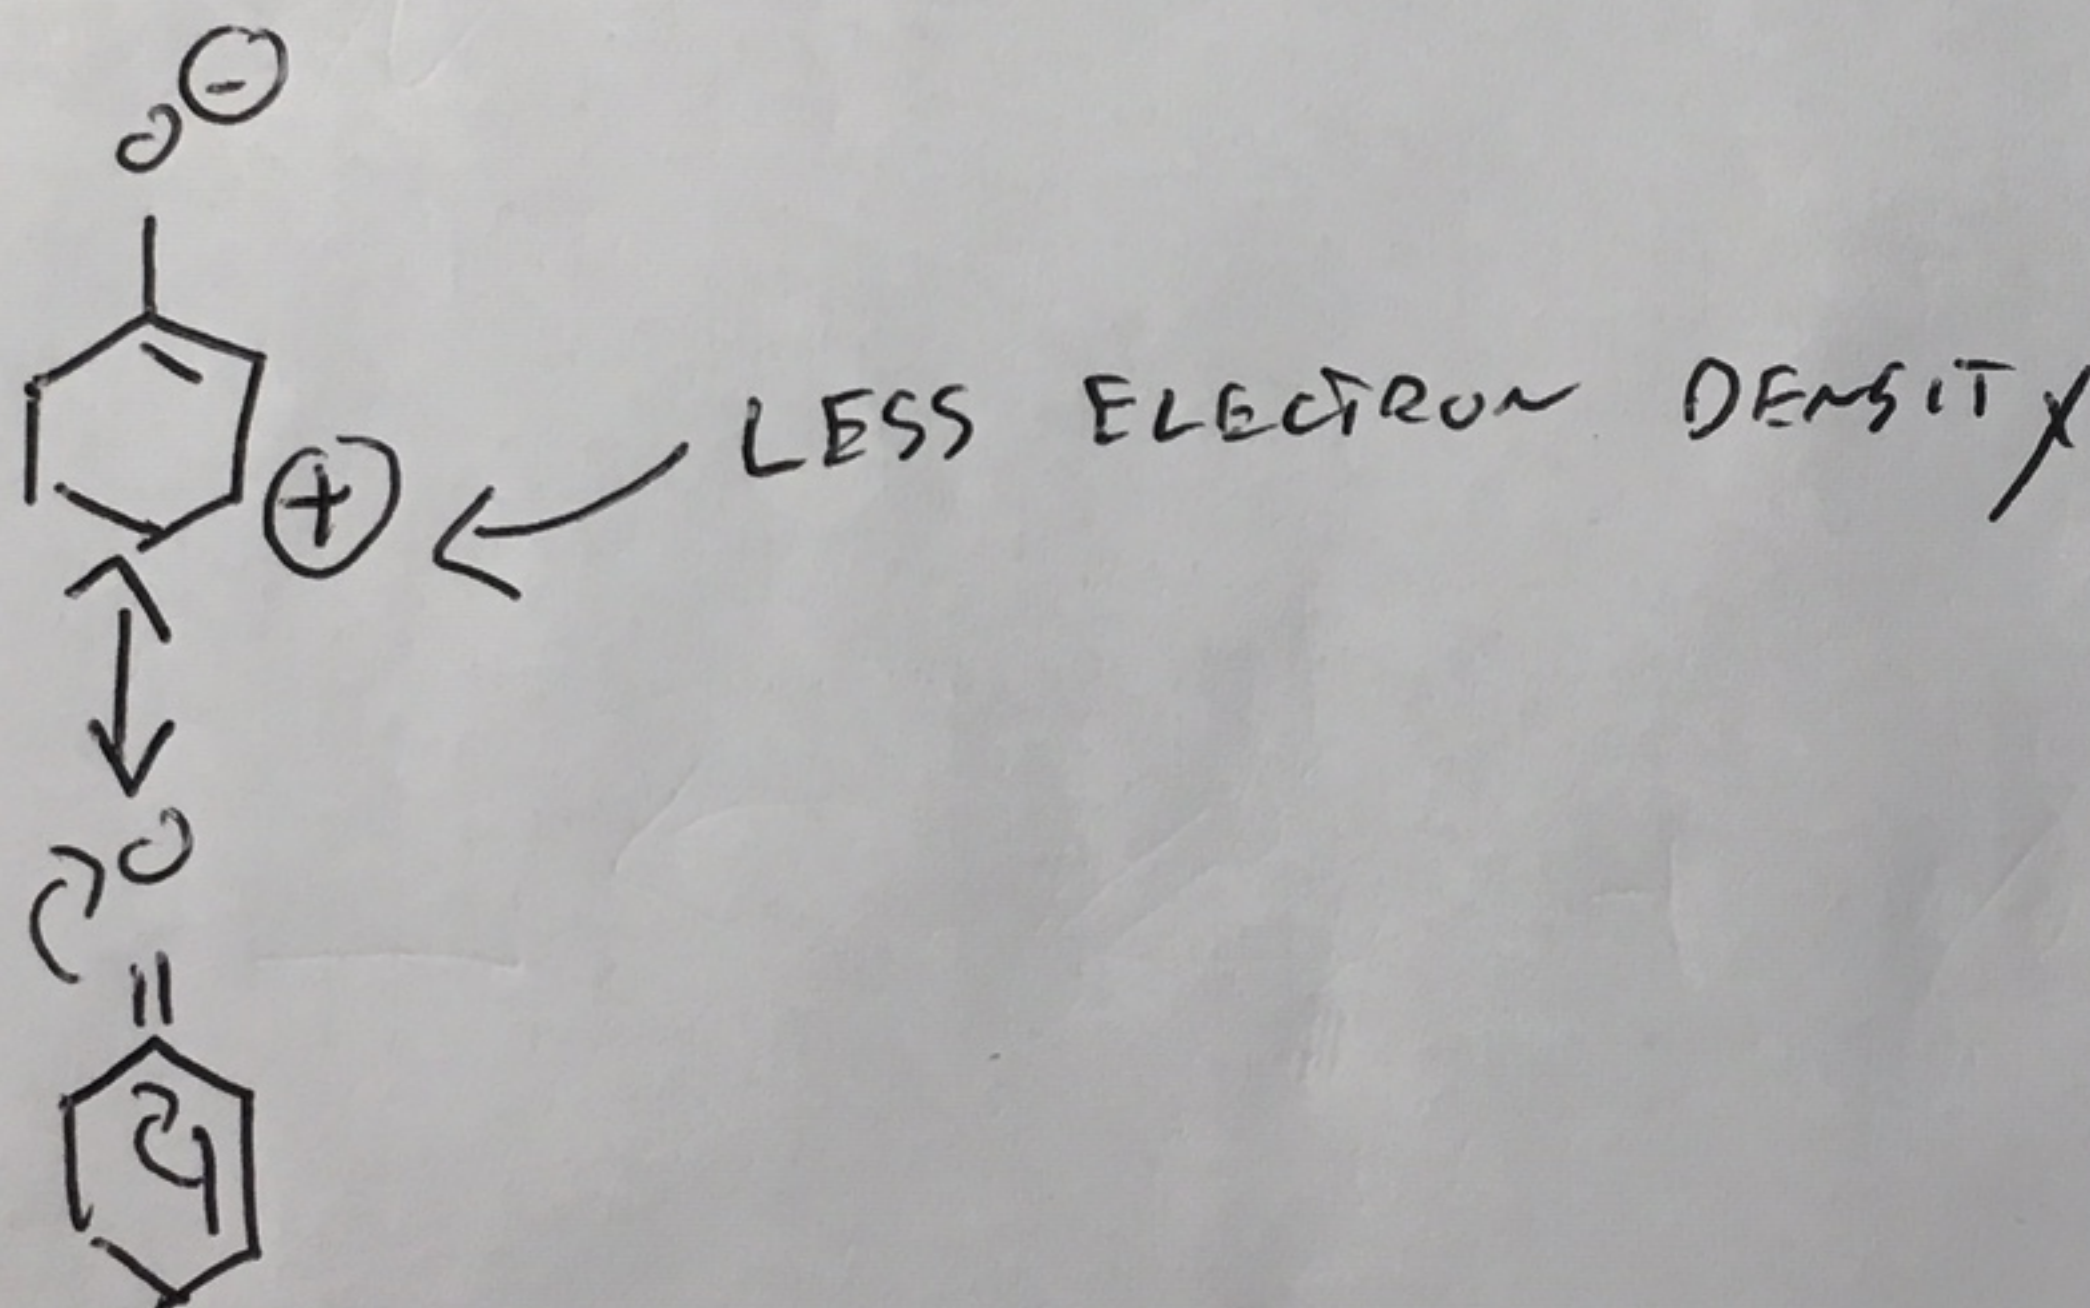 O⊖
⊕ LESS ELECTRON DENSITY
O